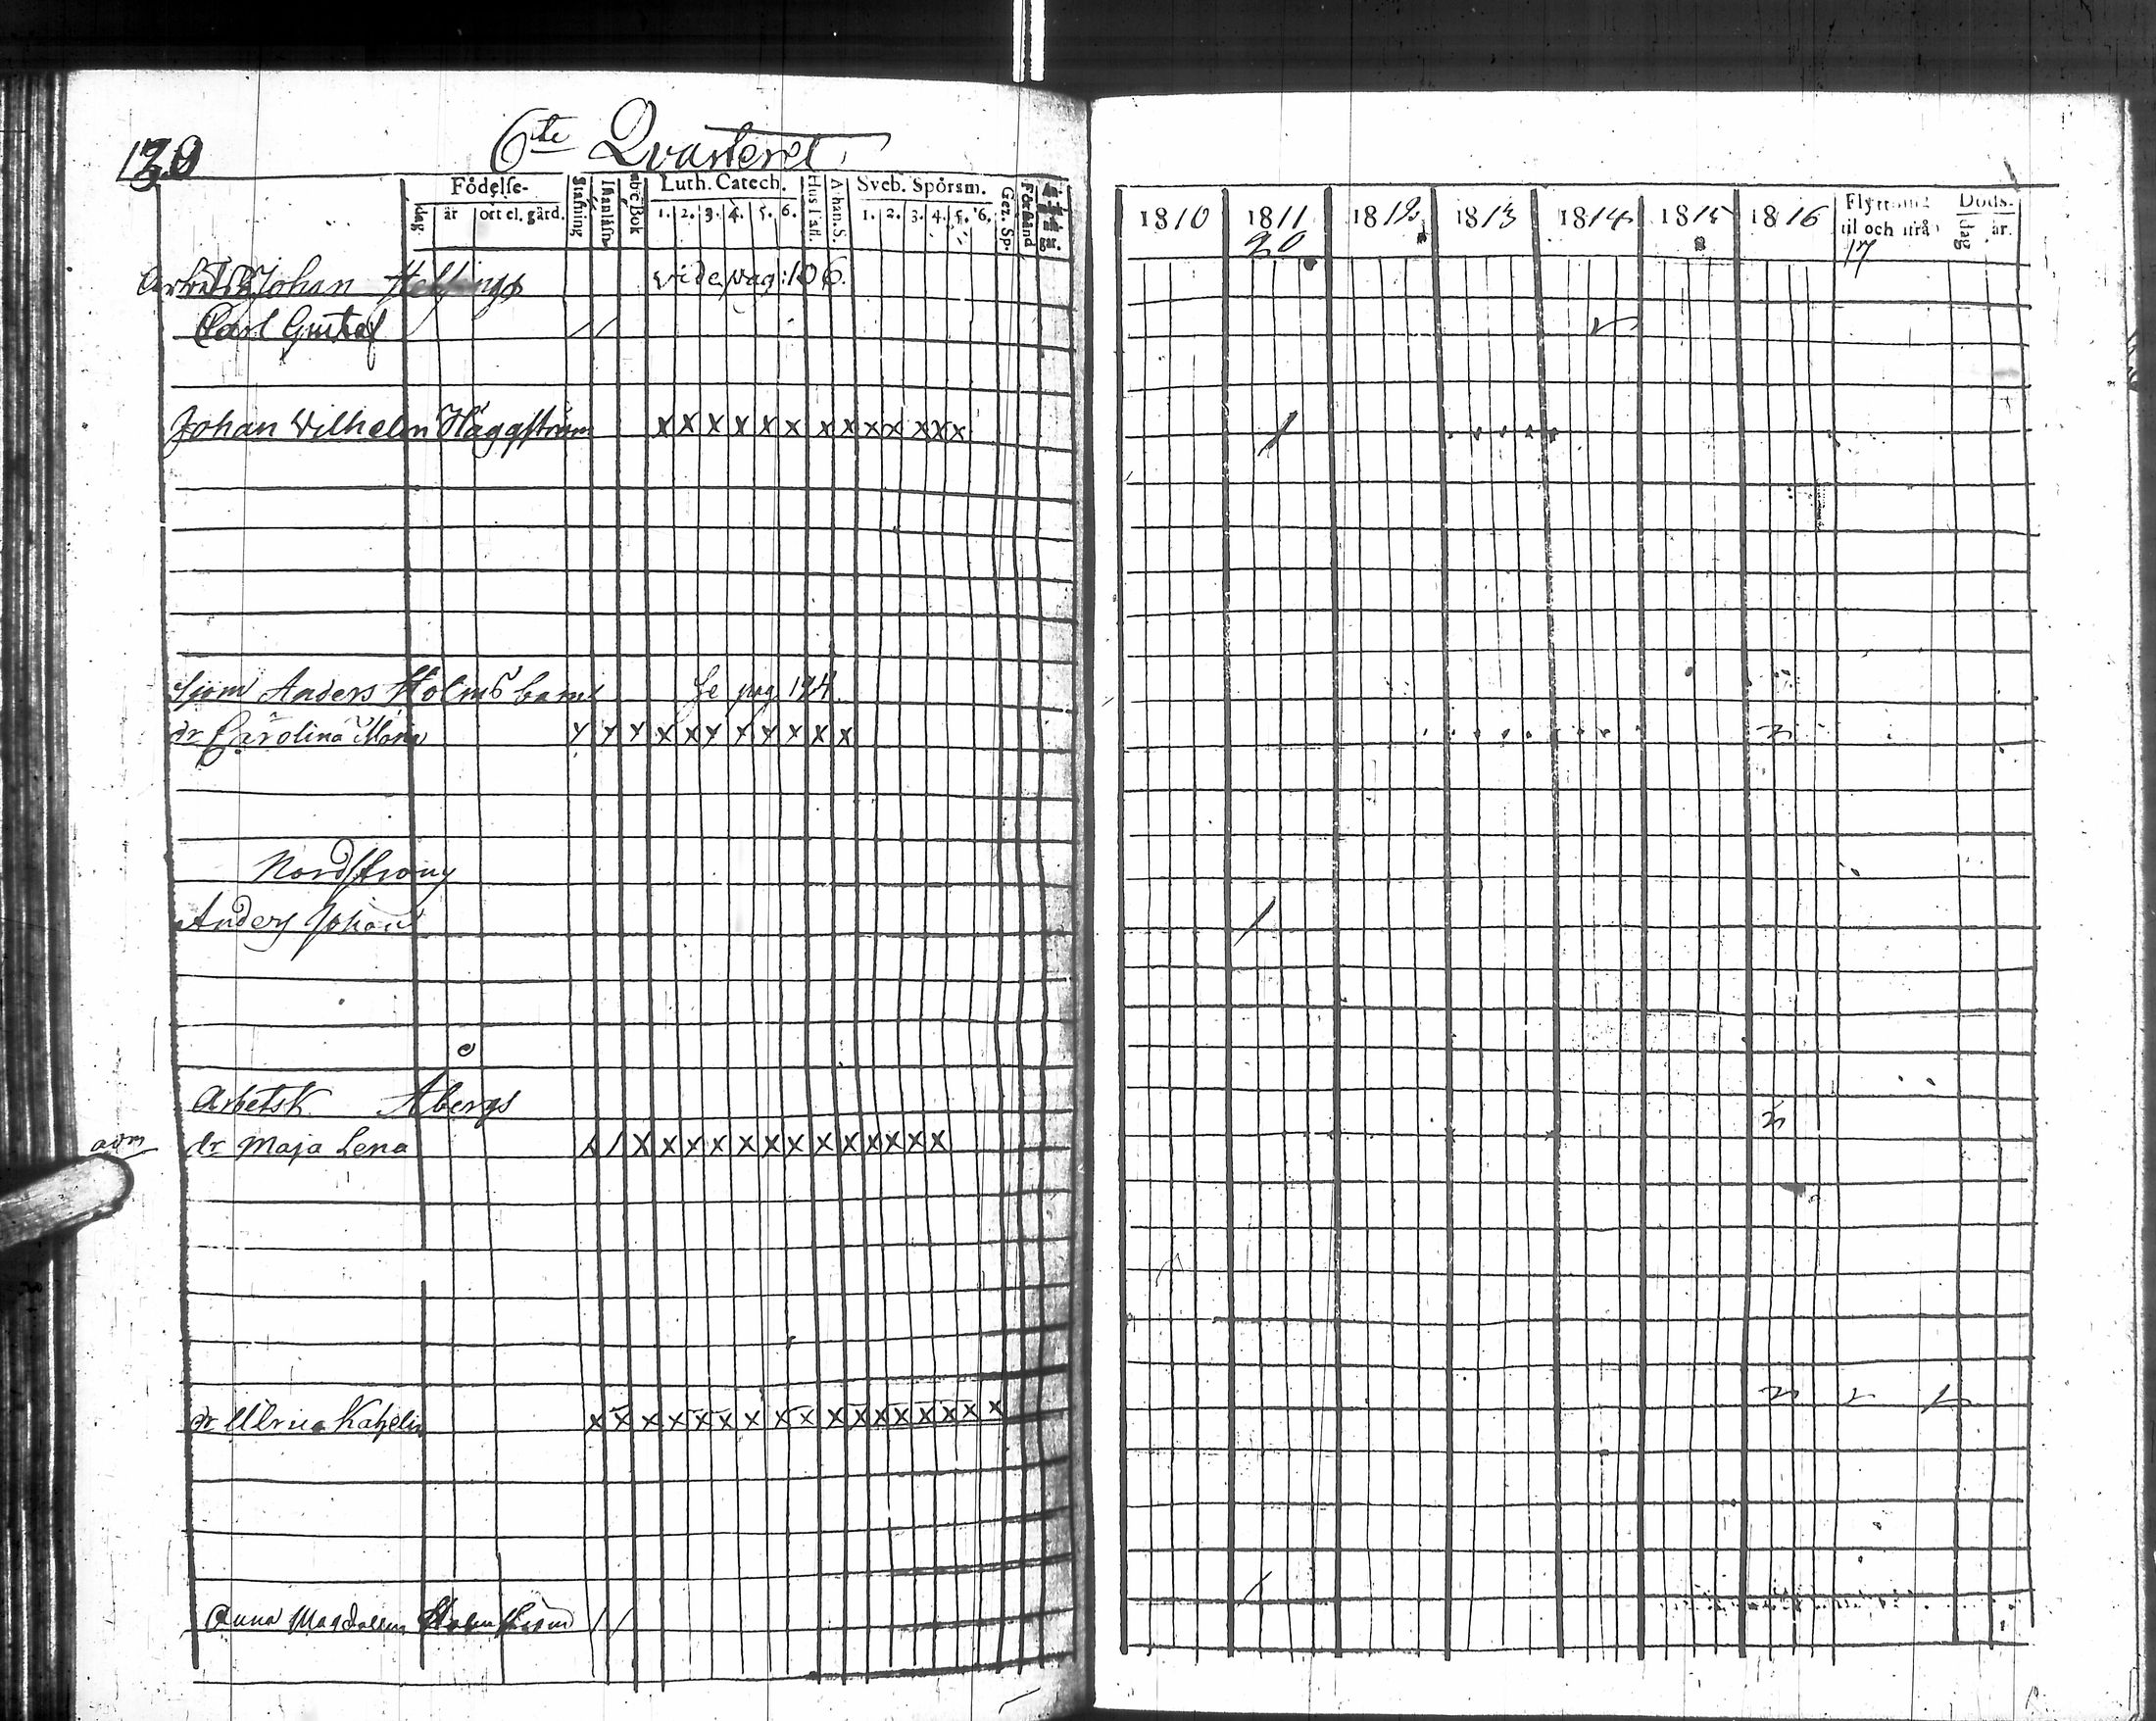 130
6te Qvarteret
Födelse-
dag
år
ort el. gård.
Stafning
Innanläsn
abc Bok
Luth. Catech.
1. 2. 3. 4. 5. 6.
Hus Tafl.
Athan. S.
Sveb. Spörsm.
1. 2. 3. 4. 5. 6.
Gez. Sp.
Förstånd
1810 1811 1812 1813 1814 1815 1816
20
Flyttande
til och ifrå
17
Döds-
dag
år.
Johan vide pag: 106.
Carl Gustaf / /
Johan Vilhelm Häggström x x x x x x x x x x x x x
Sjöm Anders Holms barn Se pag 124
dr Carolina Maria x x x x x x x x x x x
Nordstroms
Anders Johan
Arbetsk Åbergs
adm dr Maja Lena x / x x x x x x x x x x x x x
dr Ulrica x x x x x x x x x x x x x x x x x
Anna Magdalena Holmström / /